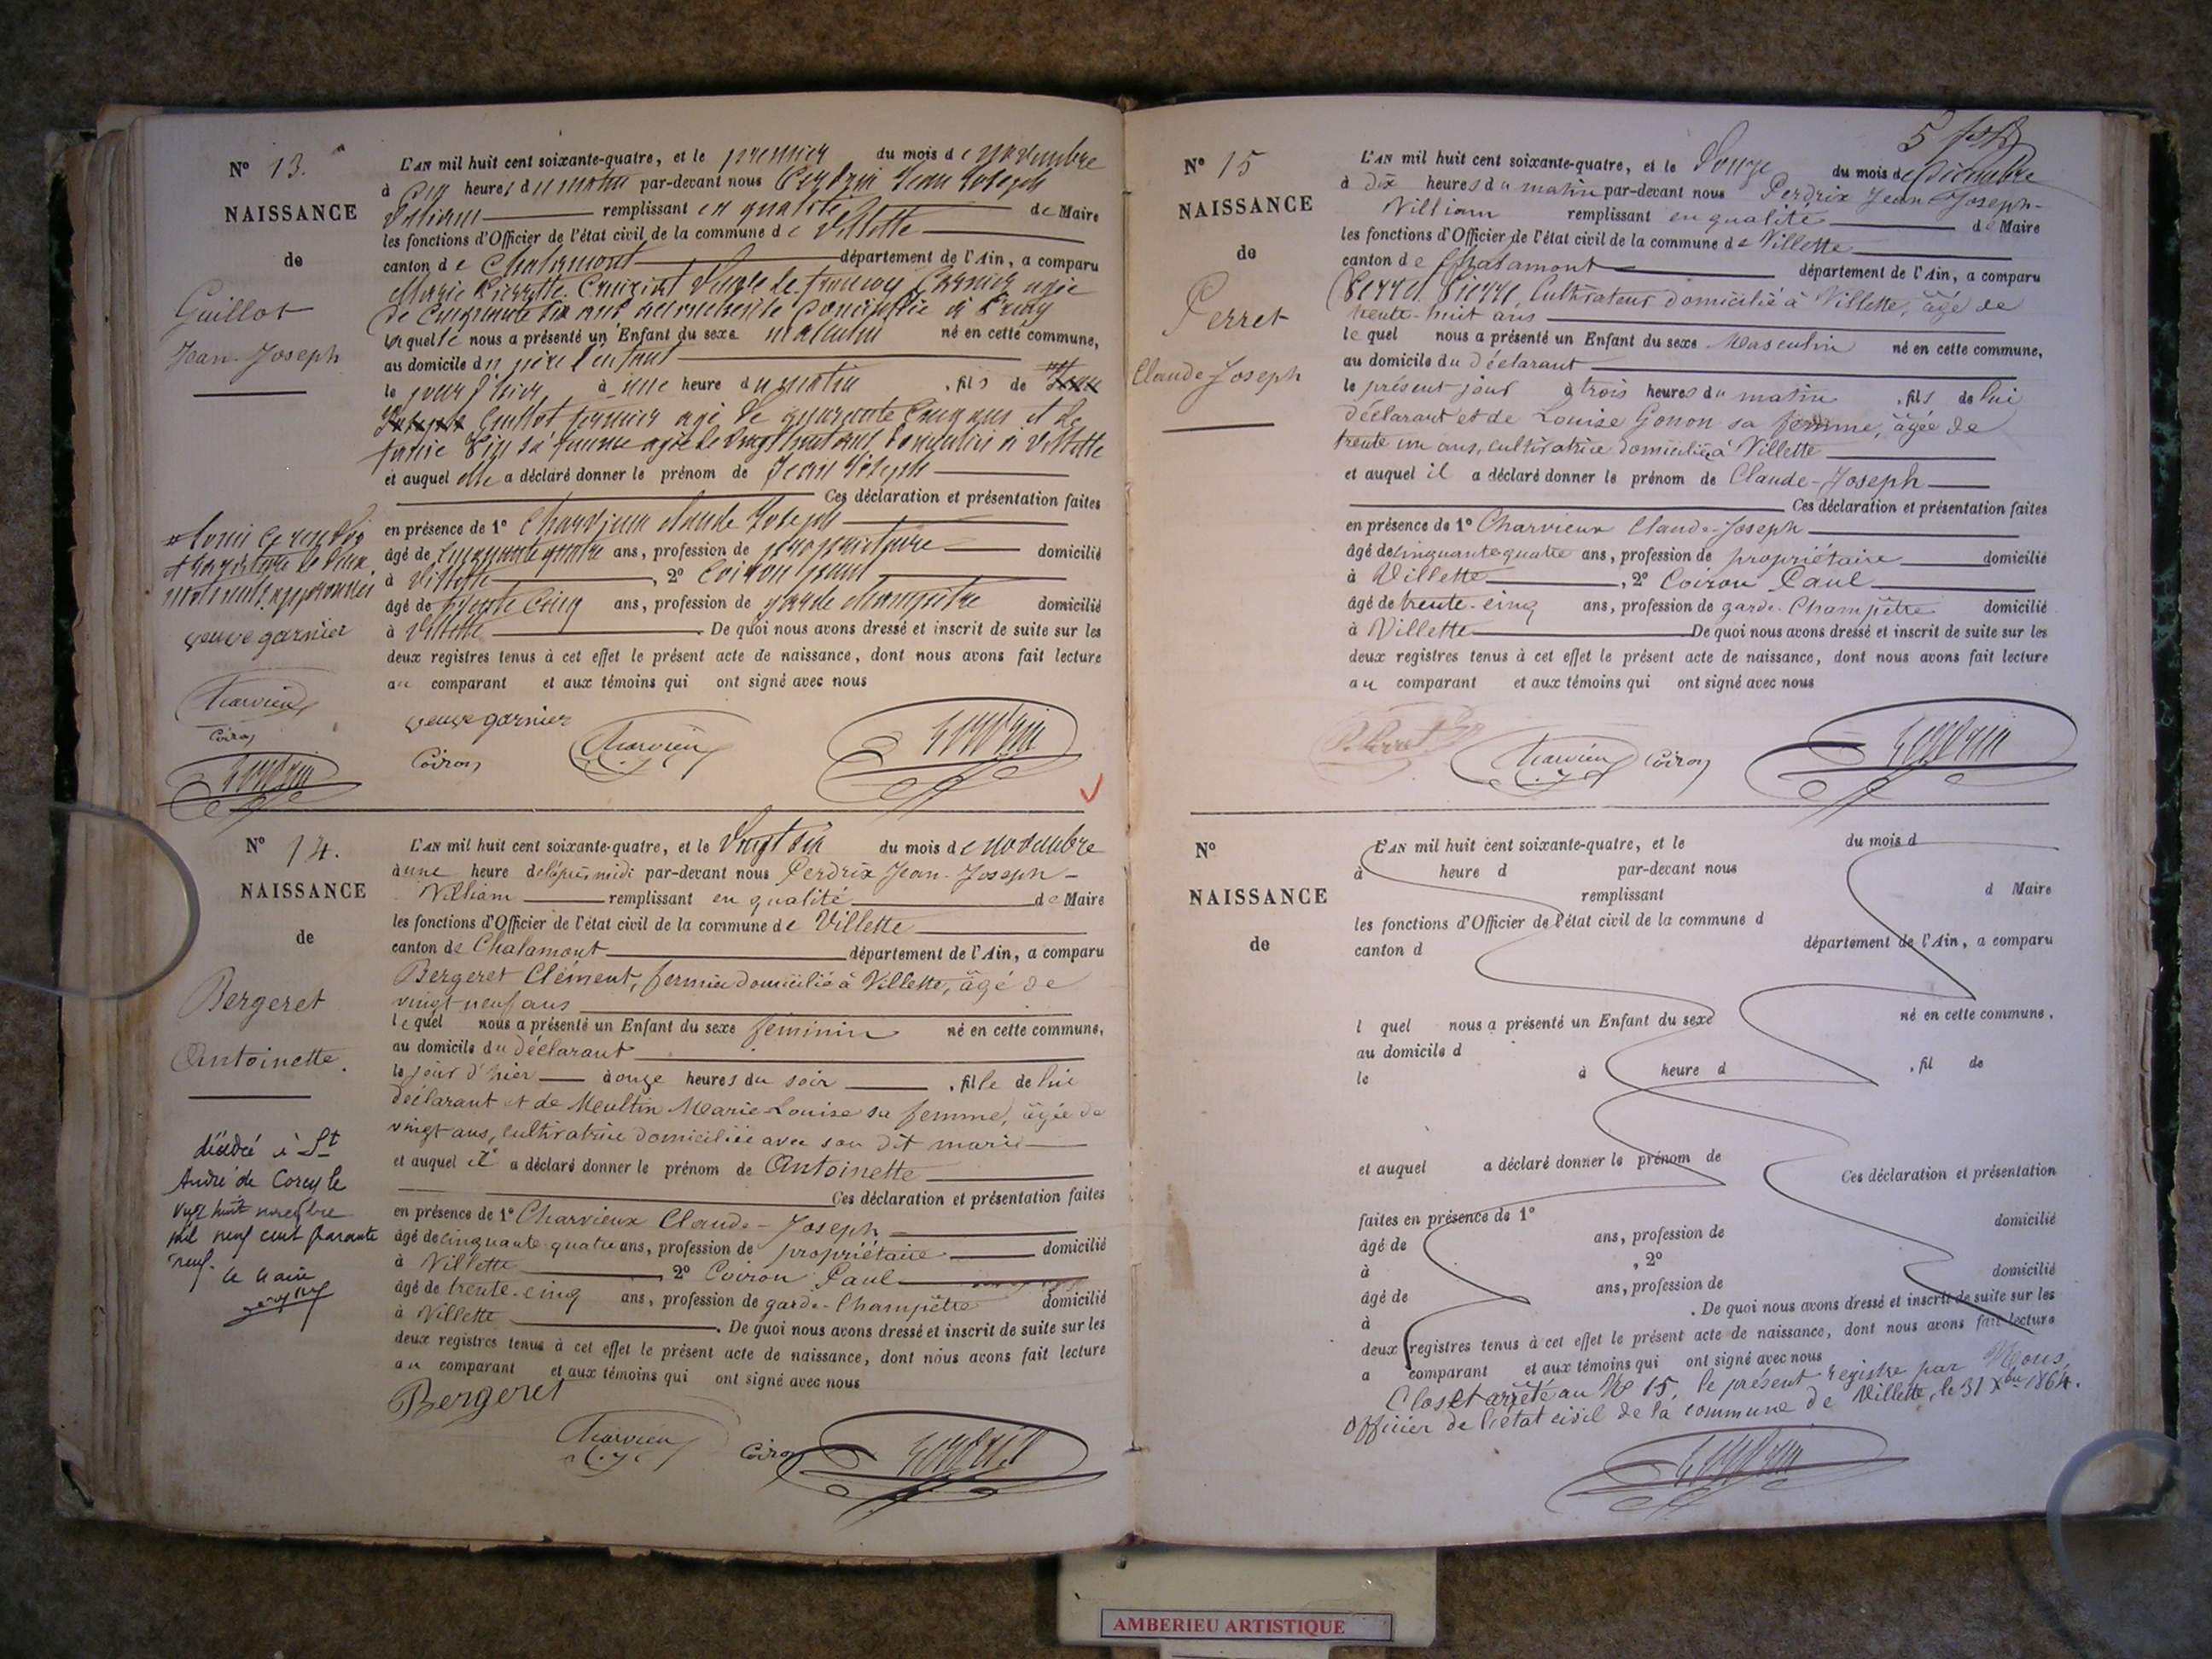 N° 13.
NAISSANCE
de
Guillot
Jean-Joseph
L'AN mil huit cent soixante-quatre, et le premier du mois de novembre
à heures du matin par-devant nous Perdrix Jean Joseph
William remplissant en qualité de Maire
les fonctions d'Officier de l'état civil de la commune de Villette
canton de Chalamont département de l'Ain, a comparu
Marie Pierrette veuve de françois Garnier agée
de Cinquante six ans accoucheuse domiciliée à
laquelle nous a présenté un Enfant du sexe masculin né en cette commune,
au domicile du père l'enfant
le jour d'hier à une heure du matin , fils de
Guillot fermier agé de quarante Cinq ans et de
sa femme agée de vingt huit ans, domiciliés à Villette
et auquel elle a déclaré donner le prénom de Jean Joseph
Ces déclaration et présentation faites
en présence de 1° Charvieux claude Joseph
âgé de cinquante quatre ans, profession de propriétaire domicilié
à Villette , 2° Coiron paul
âgé de trente Cinq ans, profession de garde champêtre domicilié
à Villette De quoi nous avons dressé et inscrit de suite sur les
deux registres tenus à cet effet le présent acte de naissance, dont nous avons fait lecture
au comparant et aux témoins qui ont signé avec nous
veuve garnier
Charvieux
Coiron
Perdrix
veuve garnier
Coiron
Charvieux
C. J.
Perdrix
N° 14.
NAISSANCE
de
Bergeret
Antoinette.
décédée à St
André de Corcy le
vingt huit novembre
mil neuf cent quarante
neuf.
Le Maire
L'AN mil huit cent soixante-quatre, et le Vingt six du mois de novembre
à une heure de l'après midi par-devant nous Perdrix Jean-Joseph-
William remplissant en qualité de Maire
les fonctions d'Officier de l'état civil de la commune de Villette
canton de Chalamont département de l'Ain, a comparu
Bergeret Clément, fermier domicilié à Villette, âgé de
vingt-neuf ans
lequel nous a présenté un Enfant du sexe féminin né en cette commune,
au domicile du déclarant
le jour d'hier à onze heures du soir , fille de lui
déclarant et de Meultin Marie-Louise sa femme, âgée de
vingt ans, cultivatrice domiciliée avec son dit mari
et auquel il a déclaré donner le prénom de Antoinette
Ces déclaration et présentation faites
en présence de 1° Charvieux Claude-Joseph
âgé de cinquante-quatre ans, profession de propriétaire domicilié
à Villette , 2° Coiron Paul
âgé de trente-cinq ans, profession de garde-Champêtre domicilié
à Villette . De quoi nous avons dressé et inscrit de suite sur les
deux registres tenus à cet effet le présent acte de naissance, dont nous avons fait lecture
au comparant et aux témoins qui ont signé avec nous
Bergeret
Charvieux
C. J.
Coiron
Perdrix
5
N° 15
NAISSANCE
de
Perret
Claude-Joseph
L'AN mil huit cent soixante-quatre, et le Douze du mois de Décembre
à dix heures du matin par-devant nous Perdrix Jean-Joseph-
William remplissant en qualité de Maire
les fonctions d'Officier de l'état civil de la commune de Villette
canton de Chalamont département de l'Ain, a comparu
Perret Pierre, Cultivateur domicilié à Villette, âgé de
trente-huit ans
lequel nous a présenté un Enfant du sexe Masculin né en cette commune,
au domicile du déclarant
le présent jour à trois heures du matin , fils de lui
déclarant et de Louise Gonon sa femme, âgée de
trente un ans, cultivatrice domiciliée à Villette
et auquel il a déclaré donner le prénom de Claude-Joseph
Ces déclaration et présentation faites
en présence de 1° Charvieux Claude-Joseph
âgé de cinquante-quatre ans, profession de propriétaire domicilié
à Villette , 2° Coiron Paul
âgé de trente-cinq ans, profession de garde-Champêtre domicilié
à Villette De quoi nous avons dressé et inscrit de suite sur les
deux registres tenus à cet effet le présent acte de naissance, dont nous avons fait lecture
au comparant et aux témoins qui ont signé avec nous
P. Perret
Charvieux
C. J.
Coiron
Perdrix
N°
NAISSANCE
de
L'AN mil huit cent soixante-quatre, et le du mois d
à heure d par-devant nous
remplissant d Maire
les fonctions d'Officier de l'état civil de la commune d
canton d département de l'Ain, a comparu
l quel nous a présenté un Enfant du sexe né en cette commune,
au domicile d
le à heure d , fil de
et auquel a déclaré donner le prénom de
Ces déclaration et présentation
faites en présence de 1°
âgé de ans, profession de domicilié
à , 2°
âgé de ans, profession de domicilié
à . De quoi nous avons dressé et inscrit de suite sur les
deux registres tenus à cet effet le présent acte de naissance, dont nous avons fait lecture
a comparant et aux témoins qui ont signé avec nous
Clos et arrêté au N° 15, le présent registre par Nous,
Officier de l'état civil de la commune de Villette, le 31 Xbre 1864.
Perdrix
AMBERIEU ARTISTIQUE